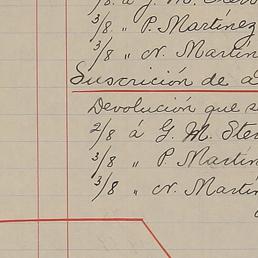 2/8 á G. M. Ster
3/8 „ P. Martínez
3/8 „ N. Martín
Suscrición de a
Devolución que s
2/8 á G. M. Ster
3/8 „ P. Martín
3/8 „ N. Martín